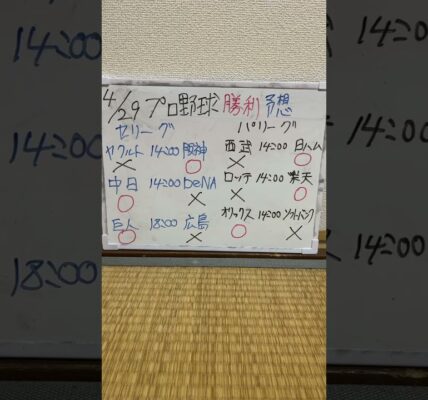 4/29 プロ野球 勝利予想
セリーグ パリーグ
ヤクルト 14:00 阪神 西武 14:00 日ハム
× ○ × ○
中日 14:00 DeNA ロッテ 14:00 楽天
○ × × ○
巨人 18:00 広島 オリックス 14:00 ソフトバンク
○ × ○ ×
14:00
14:00
18:00
14:00
14:00
ス 14:00